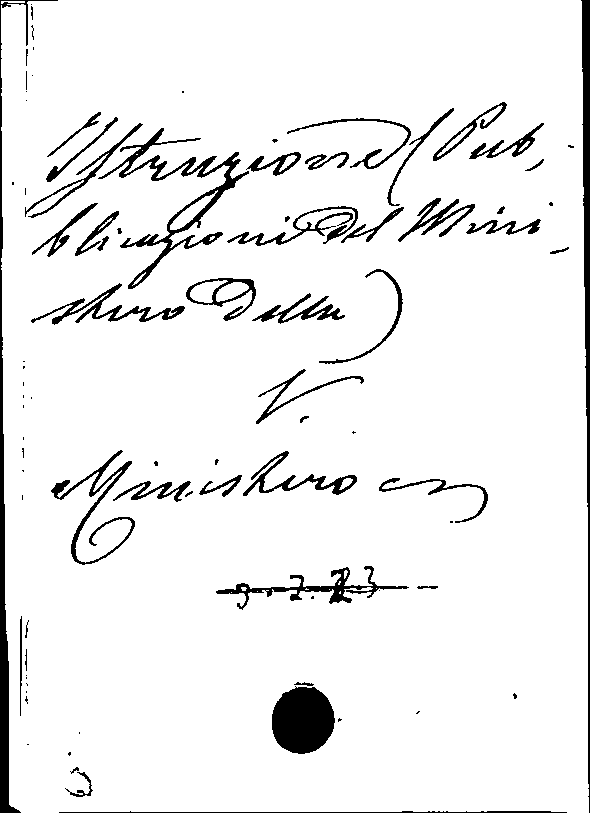 Istruzione (Pub,
blicazioni del Mini,
stero della)
V.
Ministero